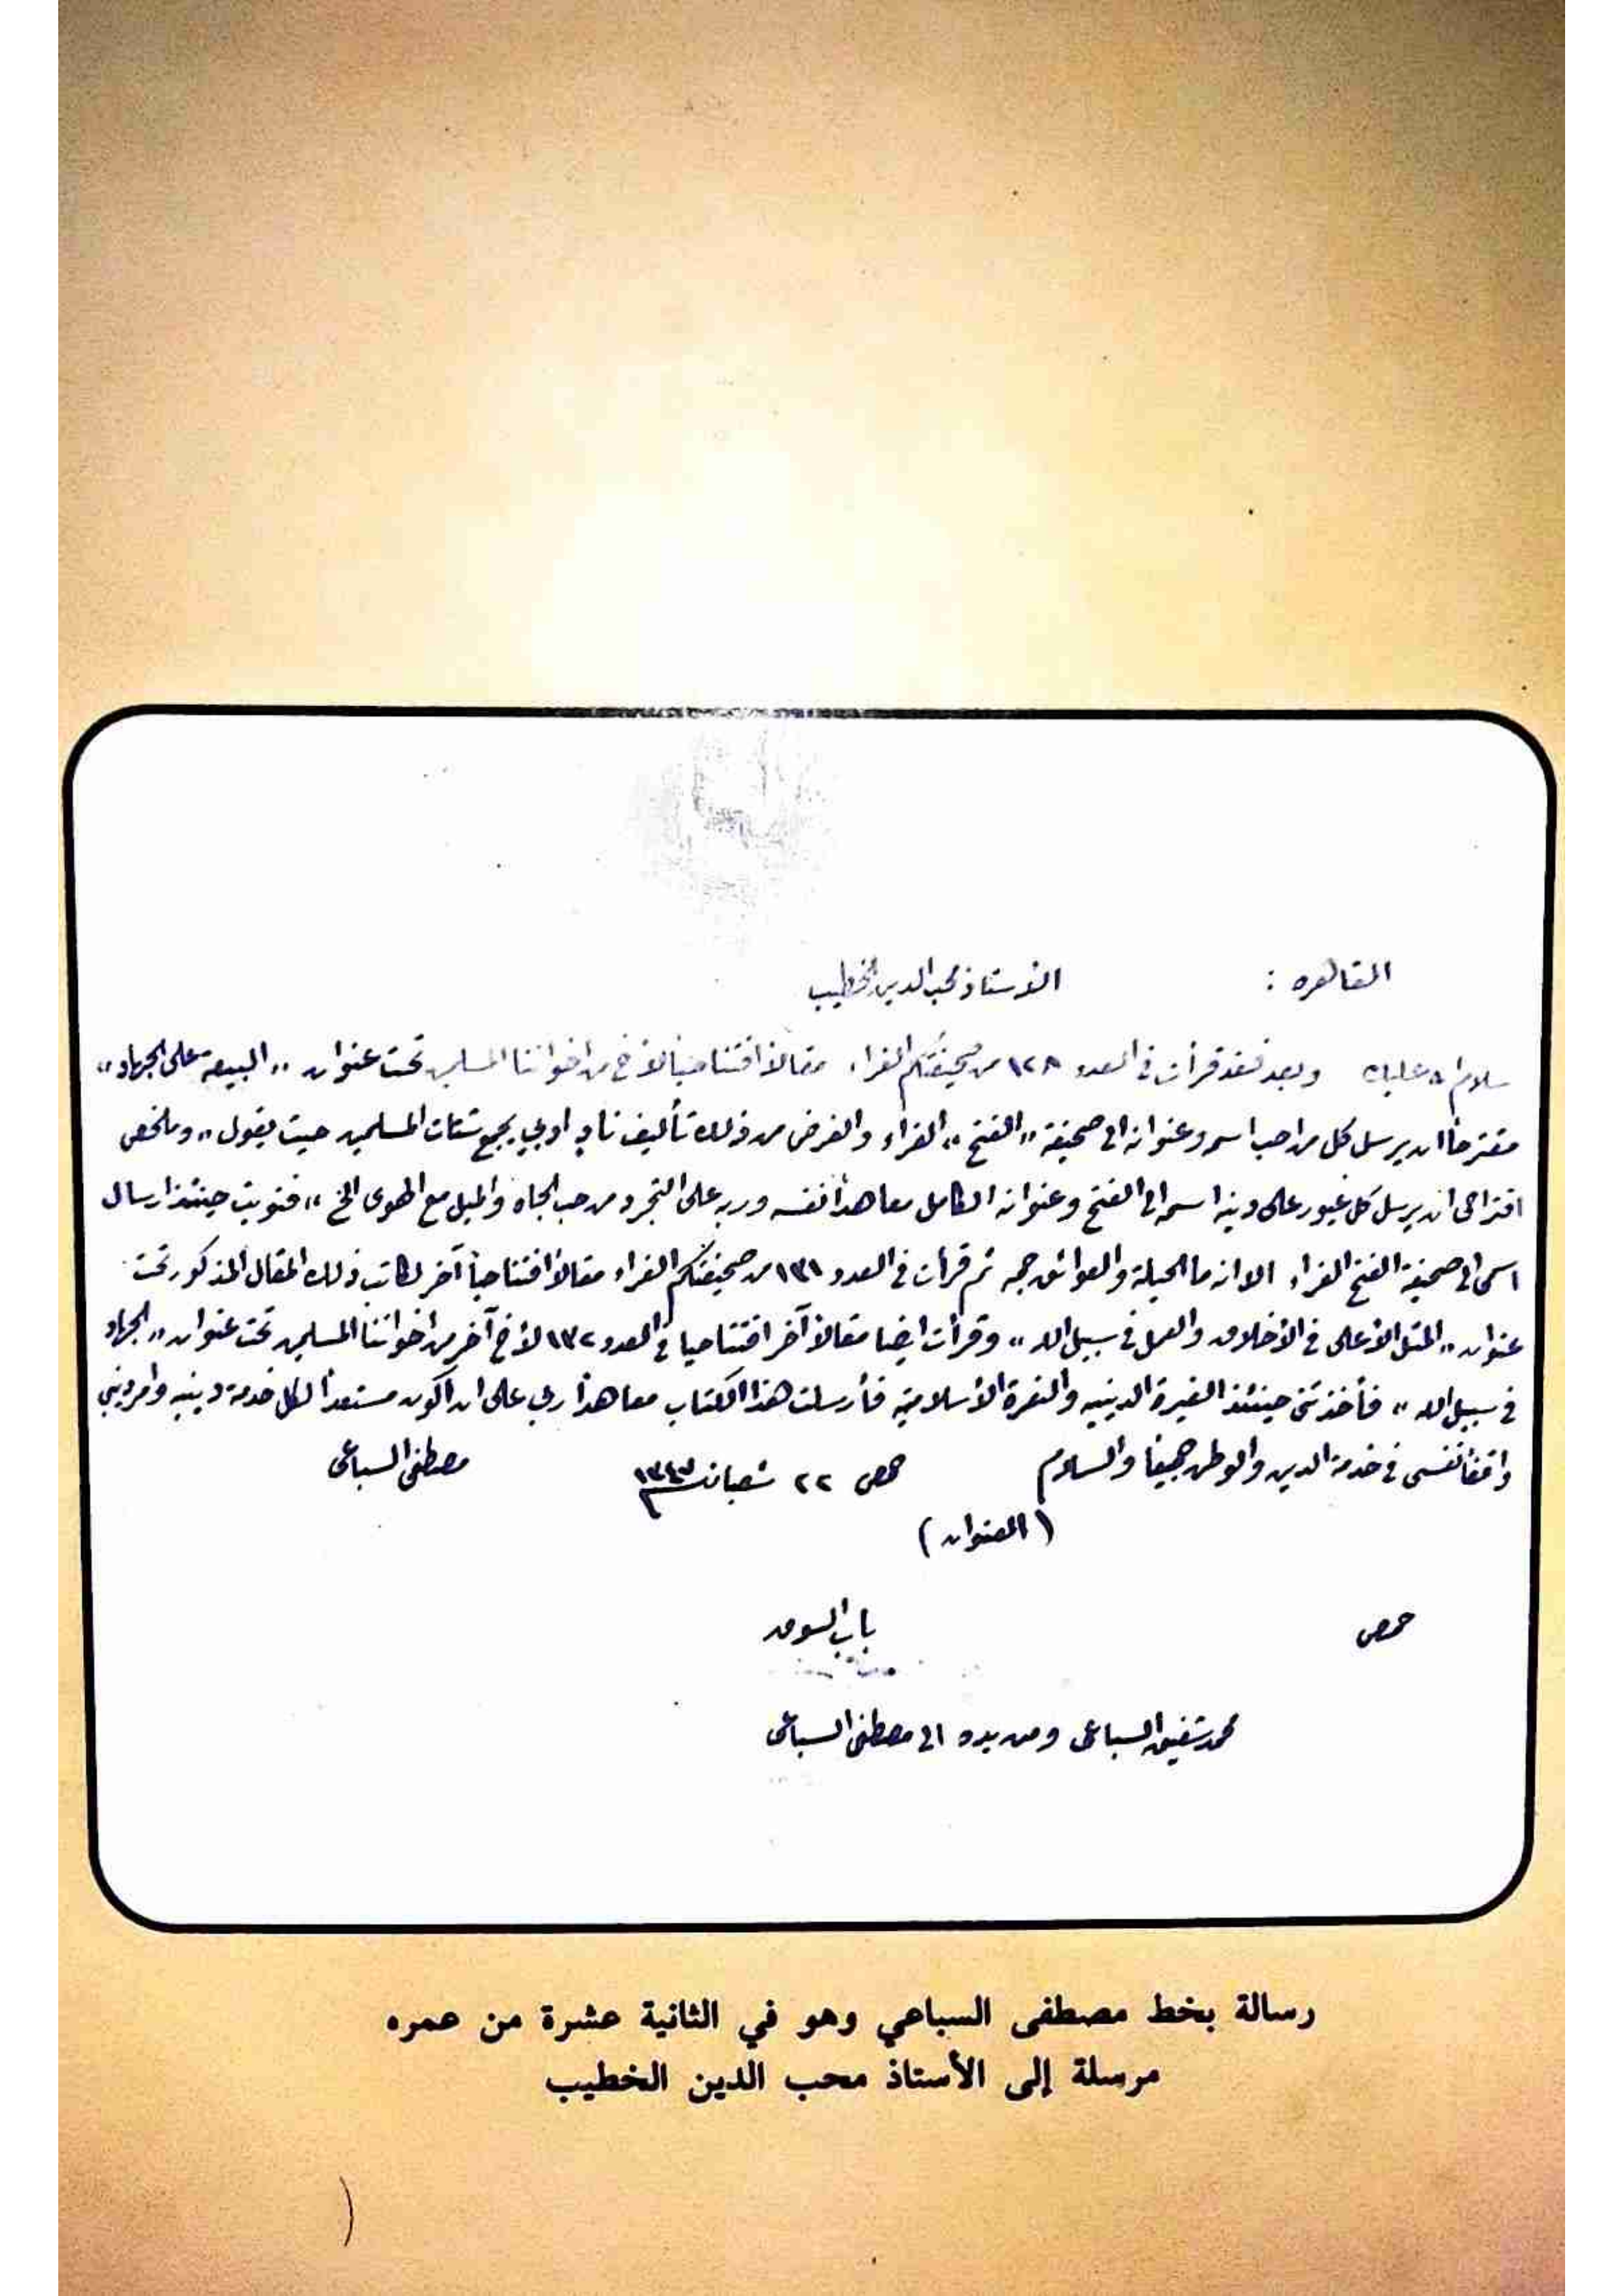 القاهره : الأستاذ محب الدين الخطيب
سلام الله عليك وبعد فقد قرأت في العدد ١٢٨ من صحيفتكم الغراء مقالاً افتتاحياً لأخ من اخواننا المسلمين تحت عنوان „ البيعة على الجهاد „
مقترحاً ان يرسل كل من احب اسمه وعنوانه الى صحيفة „ الفتح „ الغراء والغرض من ذلك تأليف ناد ادبي يجمع شتات المسلمين حيث يقول „ وملخص
اقتراحى ان يرسل كل غيور على دينه اسمه الى الفتح وعنوانه الكامل معاهداً نفسه وربه على التجرد من حب الجاه والميل مع الهوى الخ „ فنويت حينئذ ارسال
اسمى الى صحيفة الفتح الغراء الا انه ما الحيلة والعوائق جمه ثم قرأت في العدد ١٣١ من صحيفتكم الغراء مقالاً افتتاحياً آخر لكاتب ذلك المقال المذكور تحت
عنوان „ المثل الأعلى في الأخلاق والعمل في سبيل الله „ وقرأت ايضا مقالاً آخر افتتاحيا في العدد ١٣٢ لأخ آخر من اخواننا المسلمين تحت عنوان „ الجهاد
في سبيل الله „ فأخذتنى حينئذ الغيرة الدينيه والنعرة الأسلامية فأرسلت هذا الكتاب معاهداً ربي على ان اكون مستعداً لكل خدمة دينيه وامر ديني
واقفاً نفسى في خدمة الدين والوطن جميعاً والسلام حمص ٢٢ شعبان مصطفى السباعى
( العنوان )
حمص باب السوق
محمد شفيق السباعى ومن يده الى مصطفى السباعى
رسالة بخط مصطفى السباعي وهو في الثانية عشرة من عمره
مرسلة إلى الأستاذ محب الدين الخطيب